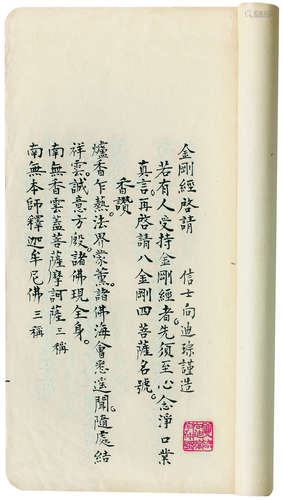 金剛經啓請　信士向迪琮謹造
若有人受持金剛經者。先須至心念淨口業
真言。再啓請八金剛四菩薩名號。
香讚
爐香乍爇。法界蒙薰。諸佛海會悉遙聞。隨處結
祥雲。誠意方殷。諸佛現全身。
南無香雲蓋菩薩摩訶薩 三稱
南無本師釋迦牟尼佛 三稱